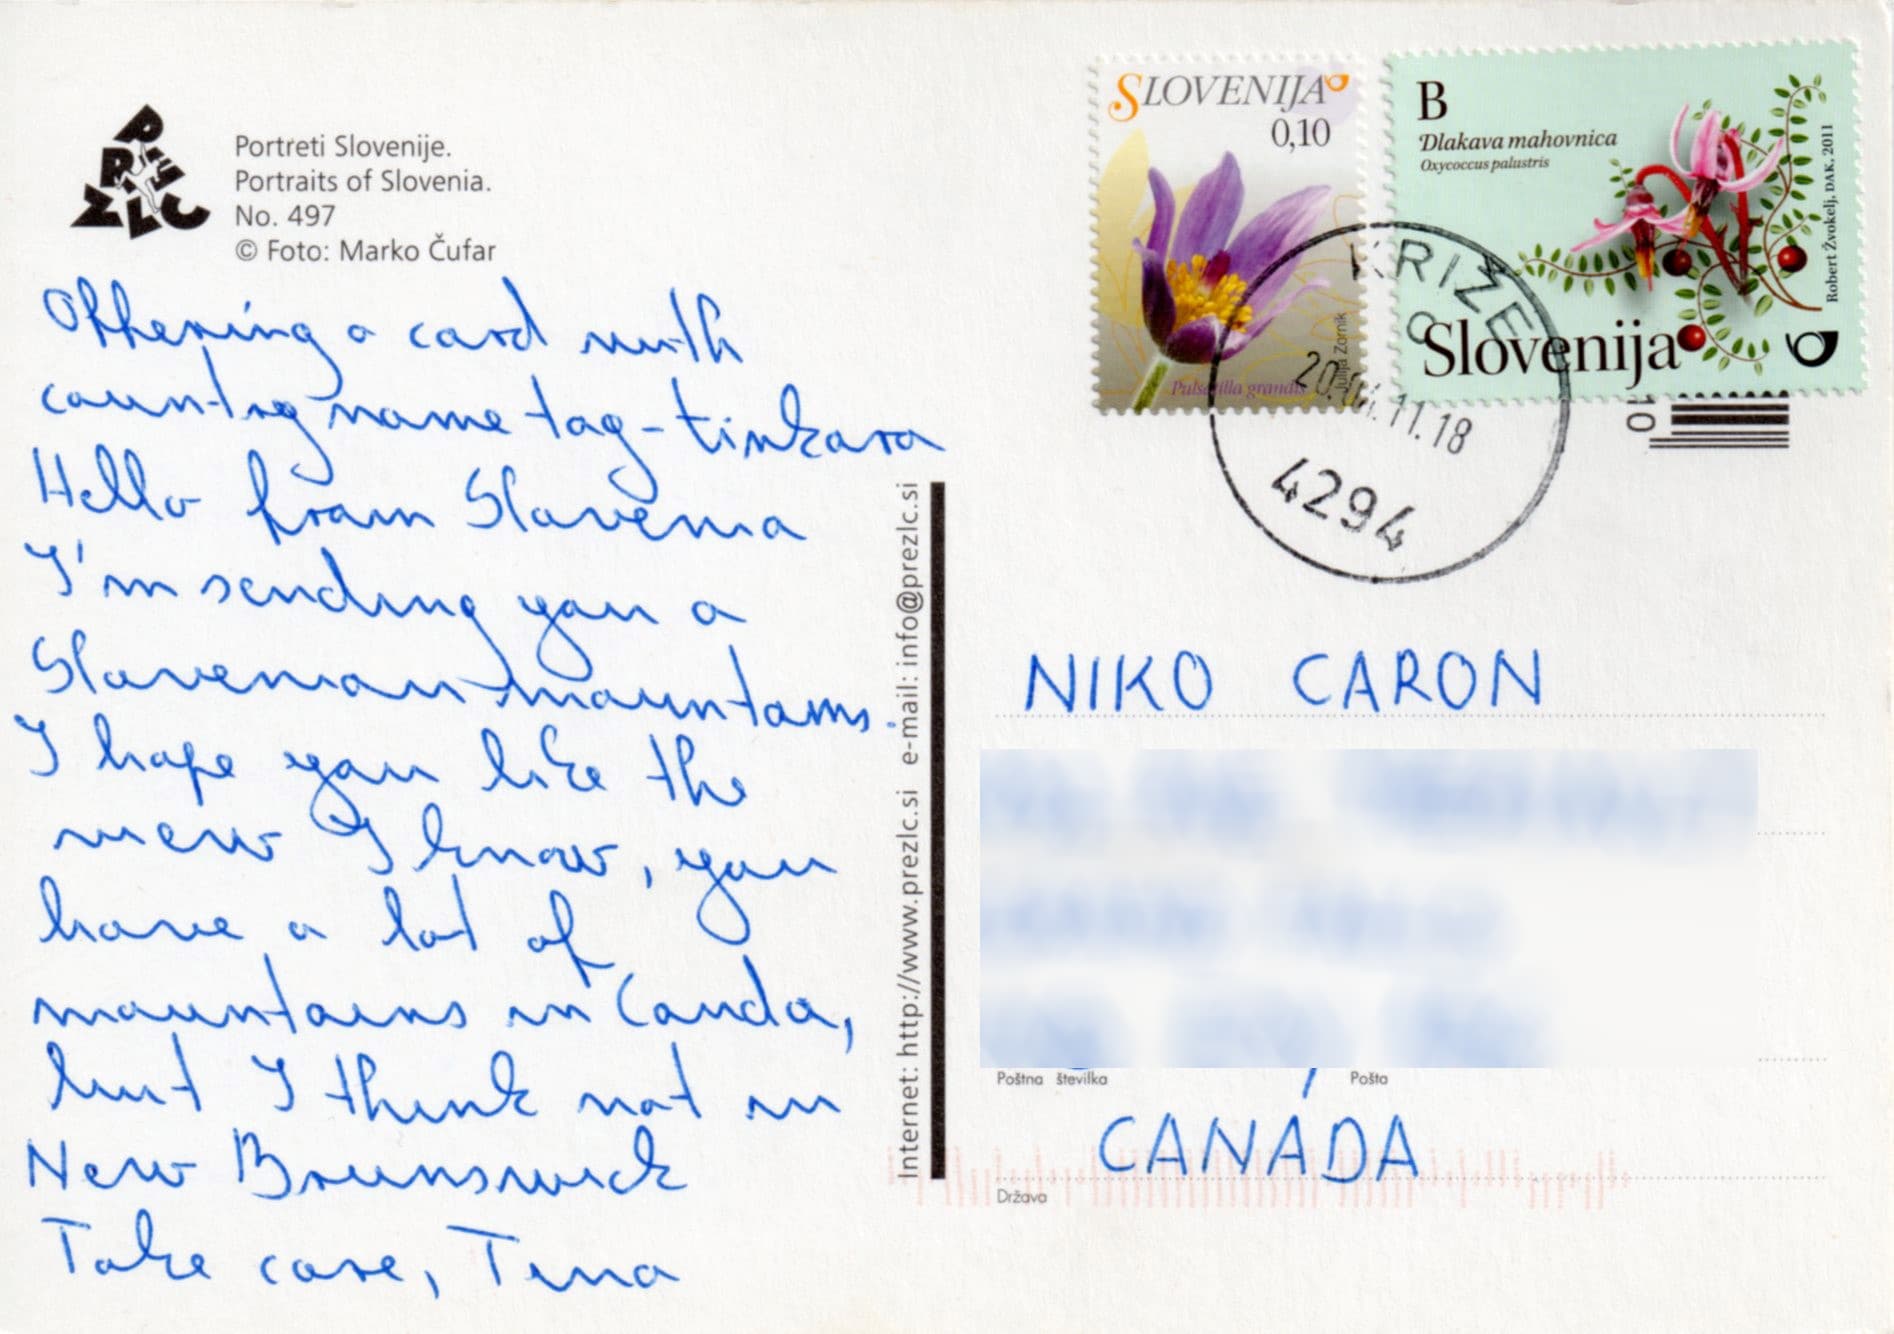 PREZLC
Portreti Slovenije.
Portraits of Slovenia.
No. 497
© Foto: Marko Čufar
Offering a card with
country name tag - tinkara
Hello from Slovenia
I'm sending you a
Slovenian mountains.
I hope you like the
view I know, you
have a lot of
mountains in Canda,
but I think not in
New Brunswick
Take care, Tina
Internet: http://www.prezlc.si e-mail: info@prezlc.si
SLOVENIJA
0,10
Pulsatilla grandis
Julija Zornik
B
Dlakava mahovnica
Oxycoccus palustris
Robert Žvokelj, DAK, 2011
Slovenija
KRIŽE
C
20.04.11.18
4294
10
NIKO CARON
Poštna številka
Pošta
CANÁDA
Država